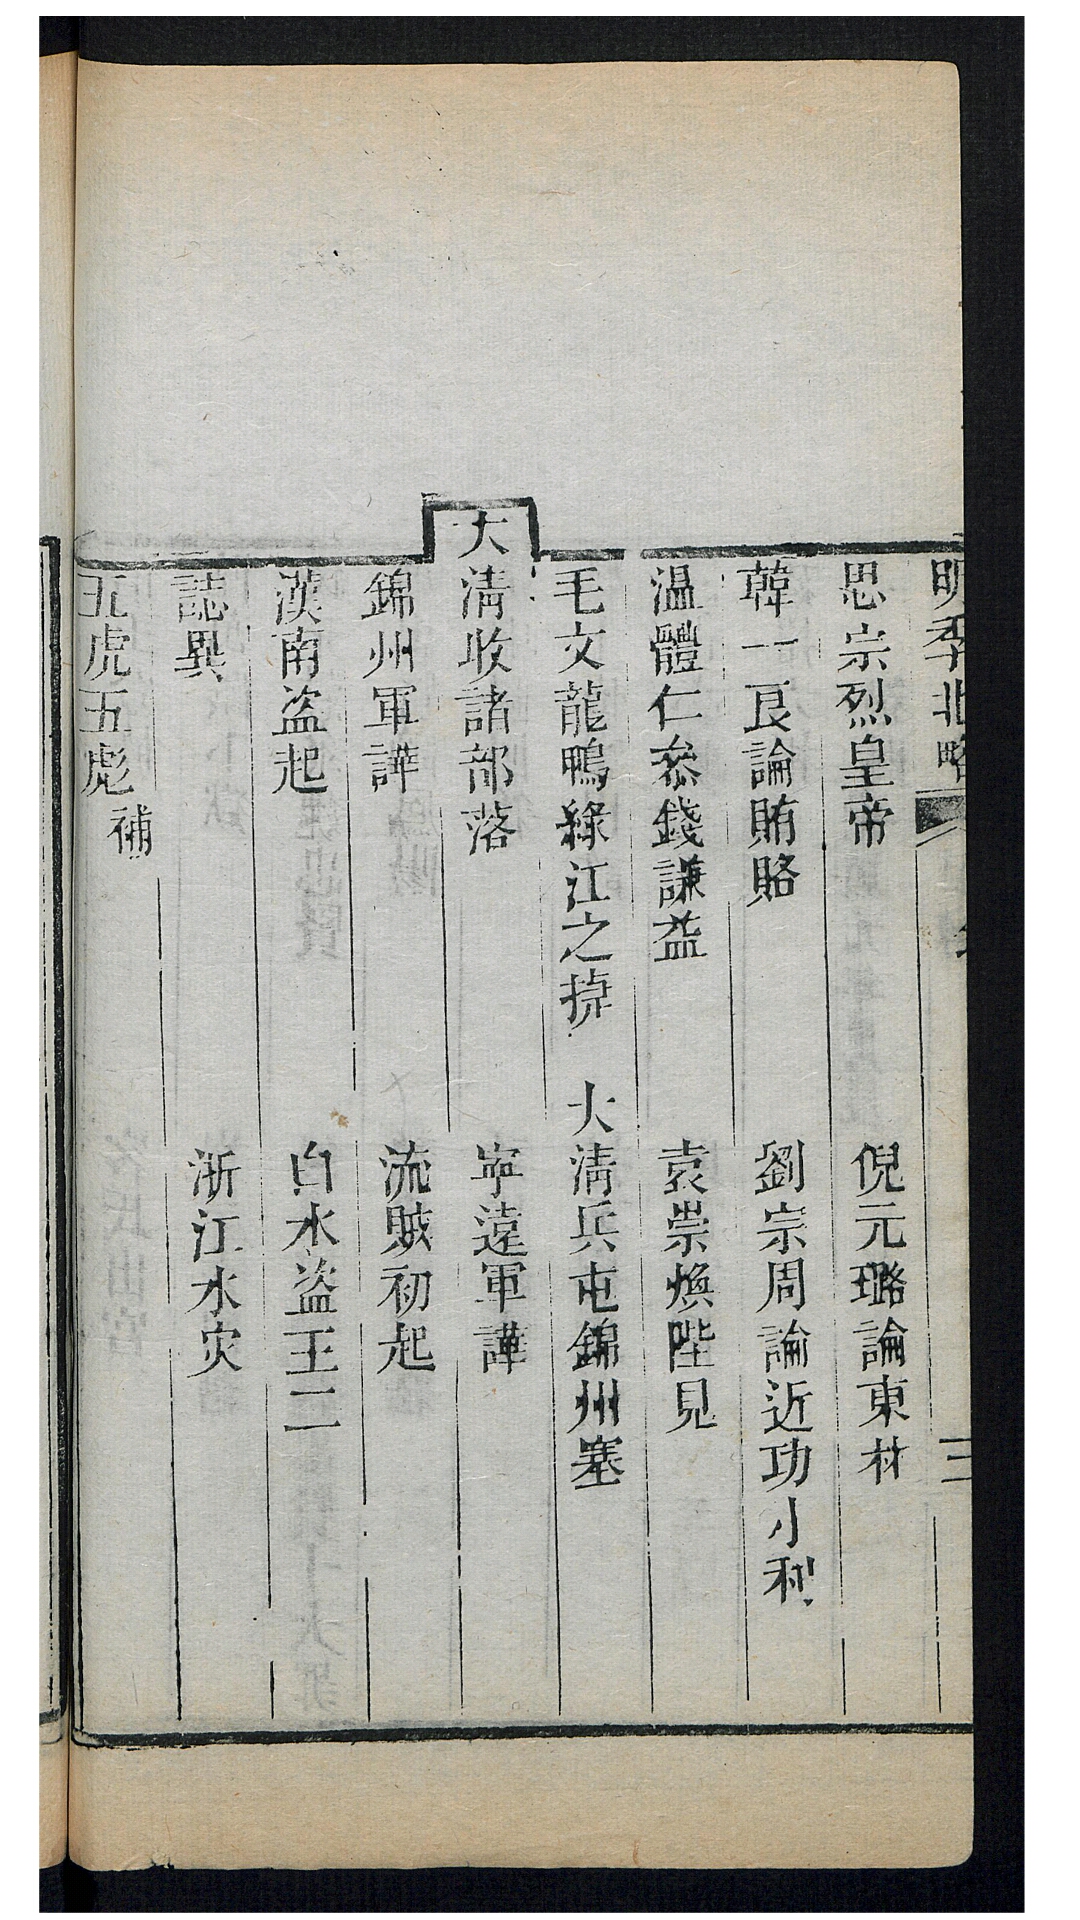 明季北略
三
思宗烈皇帝　倪元璐論東材
韓一良論賄賂　劉宗周論近功小利
溫體仁叅錢謙益　袁崇煥陛見
毛文龍鴨綠江之捷　大清兵屯錦州塞
大清收諸部落　寧遠軍譁
錦州軍譁　流賊初起
漢南盜起　白水盜王二
誌異　浙江水灾
五虎五彪補